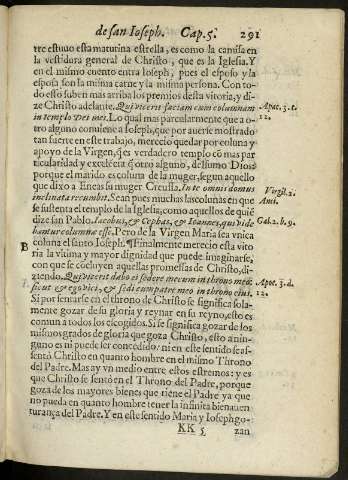 de san Ioseph. Cap. 5. 291
tre estuuo esta maturina estrella, es como la camisa en
la vestidura general de Christo, que es la Iglesia. Y
en el mismo cuento entra Ioseph, pues el esposo y la
esposa son la misma carne y la misma persona. Con to-
do esto suben mas arriba los premios desta vitoria, y di-
ze Christo adelante. Qui vicerit faciam eum columnam
in templo Dei mei. Lo qual mas parcialmente que a o-
tro alguno conuiene a Ioseph, que por auerse mostrado
tan fuerte en este trabajo, merecio quedar por coluna y
apoyo de la Virgen, q̃ es verdadero templo cõ mas par
ticularidad y excelẽcia q̃ otro alguno, del sumo Dios:
porque el marido es coluna de la muger, segun aquello
que dixo a Eneas su muger Creussa. In te omnis domus
inclinata recumbit. Sean pues muchas las colunas en que
se sustenta el templo de la Iglesia, como aquellos de quie
dize san Pablo. Iacobus, & Cephas, & Ioannes, qui vide
bantur columnæ esse. Pero de la Virgen Maria sea vnica
coluna el santo Ioseph. ¶ Finalmente merecio esta vito
ria la vitima y mayor dignidad que puede imaginarse,
con que se cõcluyen aquellas promessas de Christo, di-
ziendo. Qui vicerit dabo ei sedere mecum in throno meo:
sicut & ego vici, & sedi cum patre meo in throno eius.
Si por sentarse en el throno de Christo se significa sola-
mente gozar de su gloria y reynar en su reyno, esto es
comun a todos los escogidos. Si se significa gozar de los
mismos grados de gloria que goza Christo, esto a nin-
guno es ni puede ser concedido: ni en este sentido se as-
sentò Christo en quanto hombre en el mismo Throno
del Padre. Mas ay vn medio entre estos estremos: y es
que Christo se sentò en el Throno del Padre, porque
goza de los mayores bienes que tiene el Padre ya que
no pueda en quanto hombre tener la infinita bienauen
turança del Padre. Y en este sentido Maria y Ioseph go-
KK 5 zan
Apoc. 3. c.
12.
Virgil. 2.
Gal. 2. b. 9.
B
Apoc. 3. d.
12.